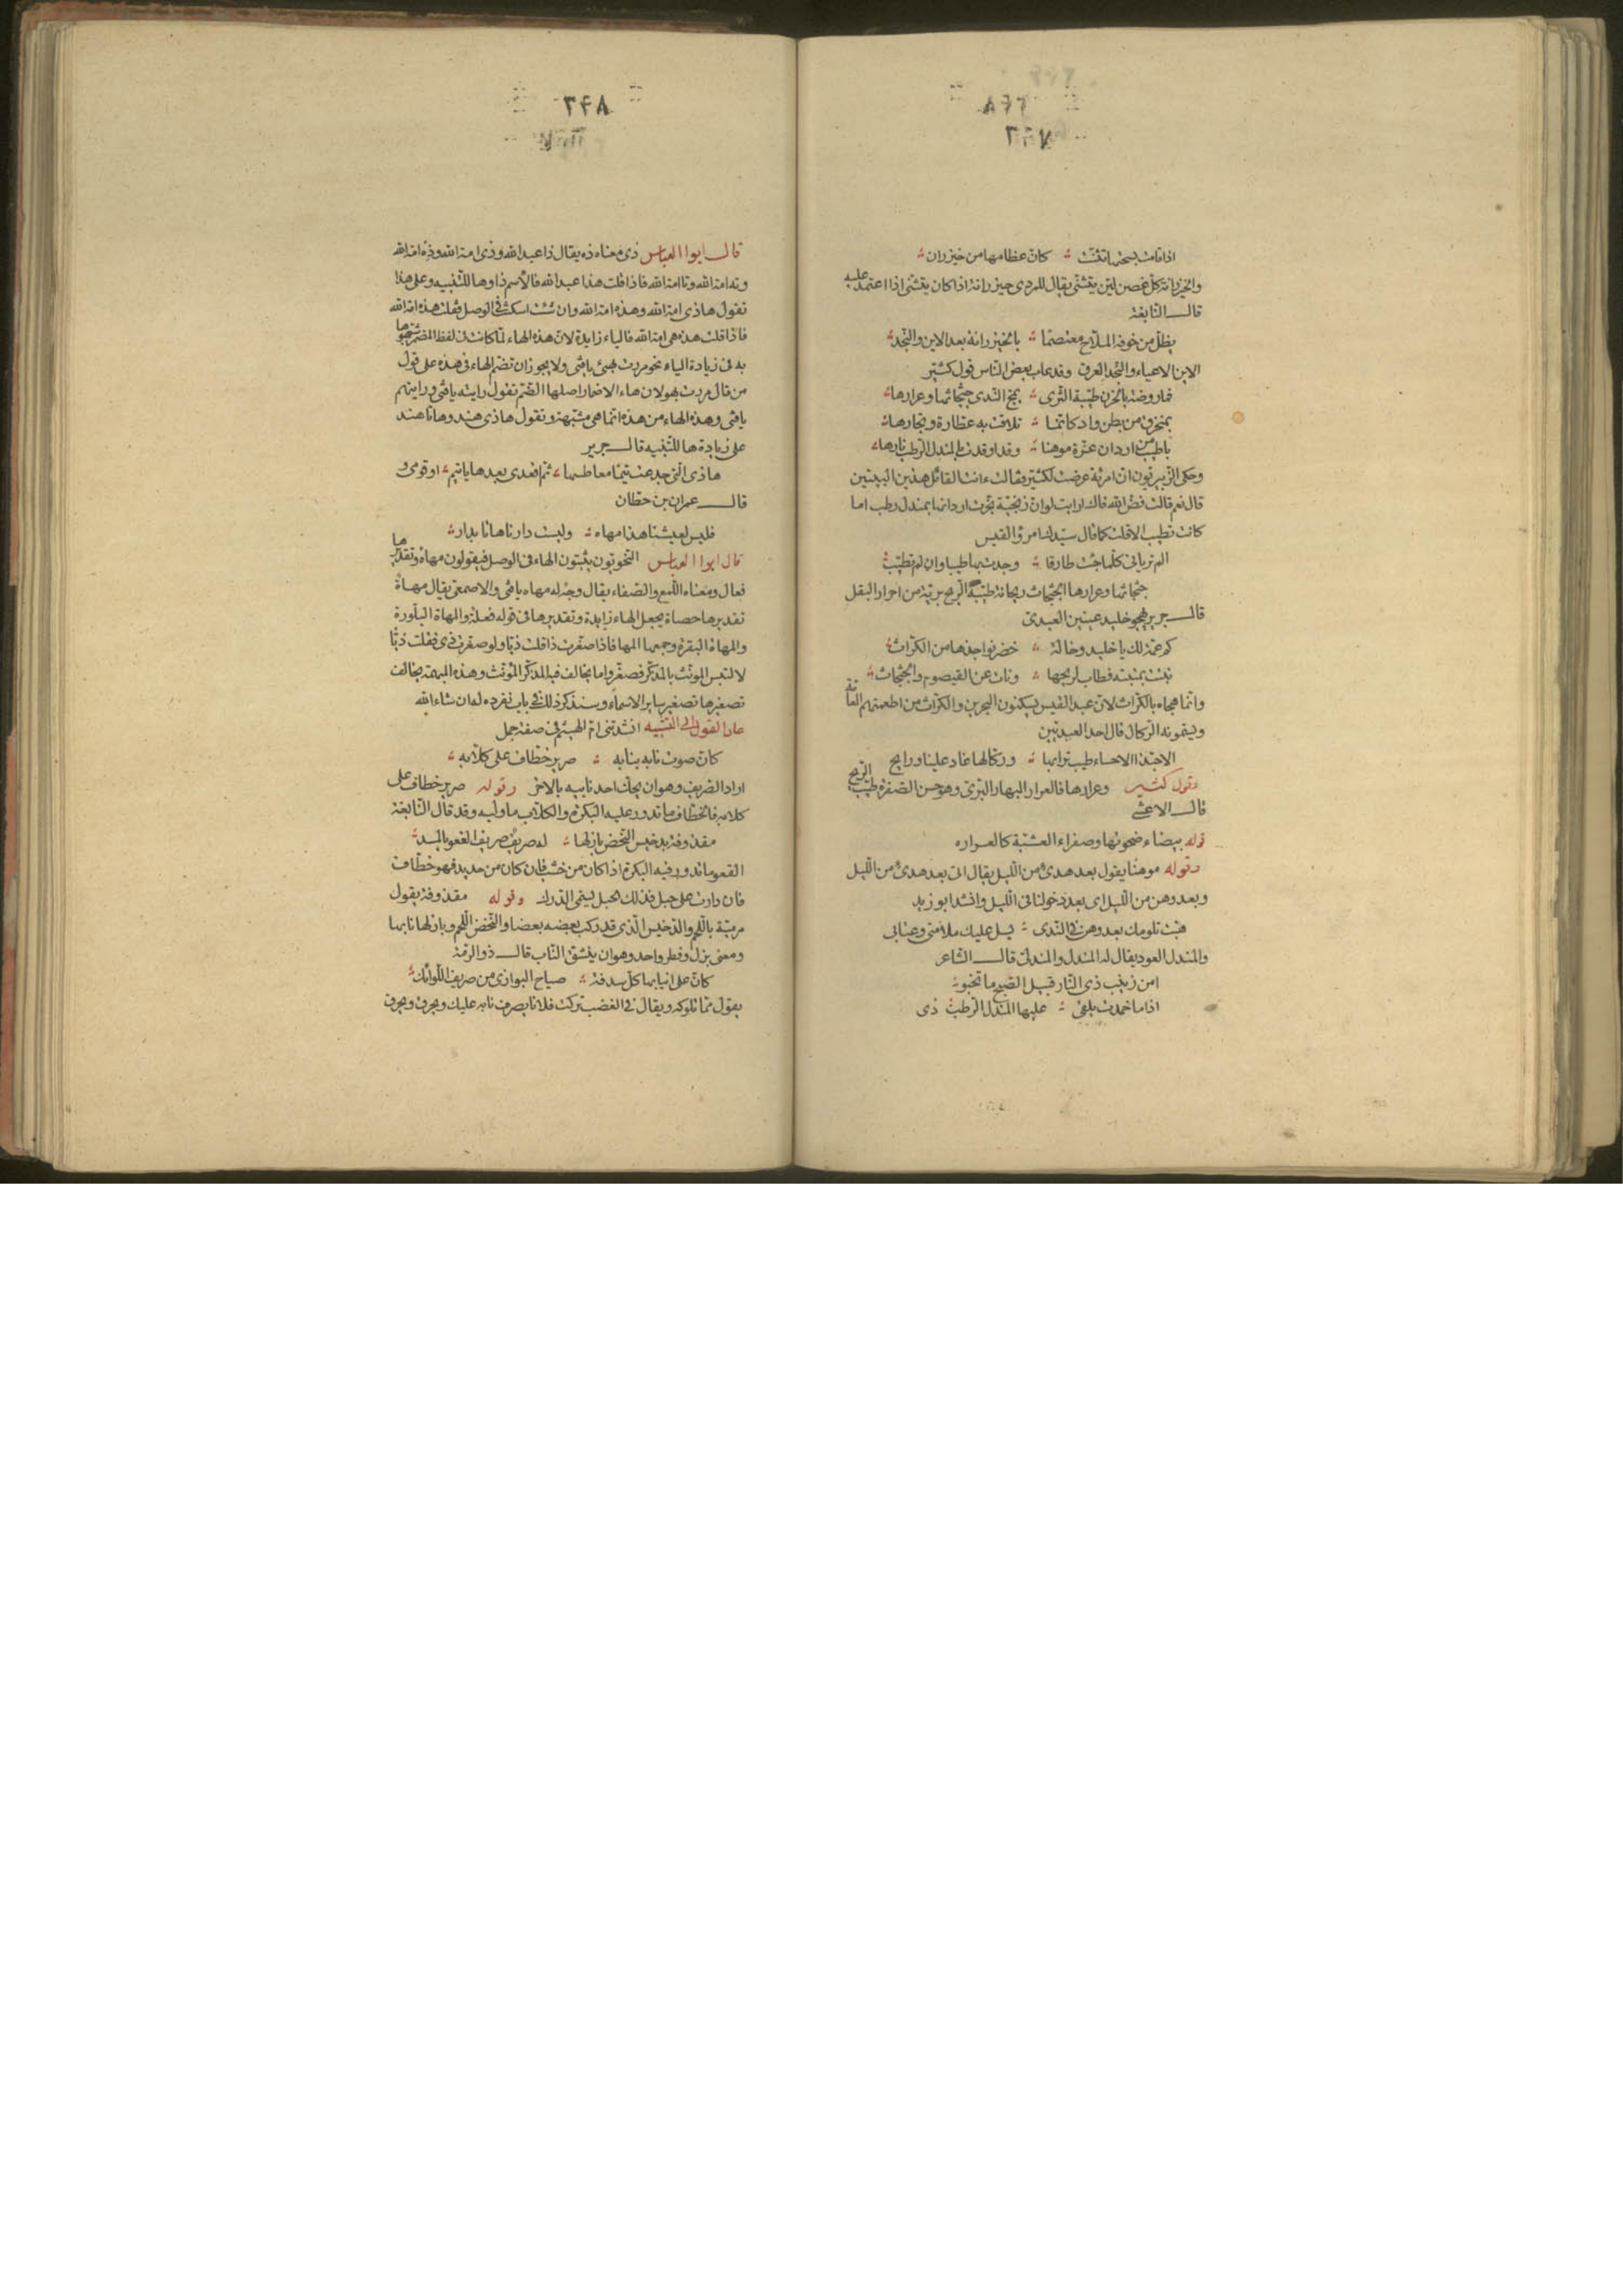 ٣٤٧
اذا قامت لسبحتها تثنت كان عظامها من خيزران
والخيزرانة كل غصن لين يتثنى يقال للمردى خيزرانة اذا كان يتثنى اذا اعتمد عليه
قال النابغة
يظل من خوفه الملاح معتصما بالخيزرانة بعد الاين والنجد
الاين الاعياء والنجد العرق وقد عاب بعض الناس قول كثير
فما روضة بالحزن طيبة الثرى يمج الندى جثجاثها وعرارها
بمنخرق من بطن واد كانما تلاقت به عطارة وتجارها
باطيب من اردان عزة موهنا وقد اوقدت بالمندل الرطب نارها
وحكى الزبيريون ان امرأة عرضت لكثير فقالت ءانت القائل هذين البيتين
قال نعم قالت فض الله فاك ارايت لو ان زنجية بخرت اردانها بمندل رطب اما
كانت تطيب الا قلت كما قال سيدك امرؤ القيس
الم تريانى كلما جئت طارقا وجدت بها طيبا وان لم تطيب
جثجاثها وعرارها الجثجاث ريحانة طيبة الريح برية من احرار البقل
قال جرير يهجو خليد عينين العبدى
كم عمة لك يا خليد وخالة خضر نواجذها من الكراث
نبتت بمنبته فطاب لريحها ونات عن القيصوم والجثجاث
وانما هجاه بالكراث لان عبد القيس يسكنون البحرين والكراث من اطعمتهم العامة
ويسمونه الركال قال احد العبديين
الا حبذا الاحساء طيب ترابها وركالها غاد علينا ورايح
وقول كثير وعرارها فالعرار البهار البرى وهو حسن الصفرة طيب الريح
قال الاعشى
قوله بيضاء ضحوتها وصفراء العشية كالعراره
وقوله موهنا يقول بعد هدئ من الليل يقال اتى بعد هدئ من الليل
وبعد وهن من الليل اى بعد دخولنا فى الليل وانشد ابو زيد
هبت تلومك بعد وهن فى الندى بسل عليك ملامتى وعتابى
والمندل العود يقال له المندل والمندلى قال الشاعر
امن زينب ذى النار قبيل الصبح ما تخبو
اذا ما خمدت يلقى عليها المندل الرطب ذى
٣٤٨
قال ابوا العباس ذى معناه ذه يقال ذا عبد الله وذى امة الله وذه امة الله
وته امة الله وتا امة الله فاذا قلت هذا عبد الله فالاسم ذا وها للتنبيه وعلى هذا
تقول هاذى امة الله وهذه امة الله وان شئت اسكنت فى الوصل فقلت هذه امة الله
فاذا قلت هذهى امة الله فالياء زايدة لان هذه الهاء لما كانت فى لفظ المضمر شبهوها
به فى زيادة الياء نحو مررت بهى يافتى ولا يجوز ان تضم الهاء فى هذه على قول
من قال مررت بهو لان هاء الاضمار اصلها الضم تقول رايته يافتى ورايتهم
يافتى وهذه الهاء من هذه انما هى مشبهة وتقول هاذى هند وهاتا هند
على زيادة ها للتنبيه قال جرير
هاذى التى جدعت تيما معاطسها ثم اقعدى بعدها ياتيم او قومى و
قال عمران بن حطان
فليس لعيشنا هذا مهاه وليست دارنا هاتا بدار
قال ابوا العباس النحويون يثبتون الهاء فى الوصل فيقولون مهاه وتقديرها
فعال ومعناه اللمع والصفاء يقال وجه له مهاه يافتى والاصمعى يقال مهاة
تقديرها حصاة يجعل الهاء زايدة وتقديرها فى قوله فعلة والمهاة البلورة
والمهاة البقرة وجمعها المها فاذا صغرت ذا قلت ذيا ولو صغرت ذى فقلت ذيا
لالتبس المونث بالمذكر فصغروا ما يخالف فيه المذكر المونث وهذه المبهمة يخالف
تصغيرها تصغير ساير الاسماء وسنذكر ذلك فى باب نفرده له ان شاء الله
عاد القول الى التشبيه انشدتنى ام الهيثم فى صفة جمل
كان صوت نابه بنابه صرير خطاف على كلابه
اراد الصريف وهو ان يحك احد نابيه بالاخر وقوله صرير خطاف على
كلابه فالخطاف ما تدور عليه البكرة والكلاب ما وليه وقد قال النابغة
مقذوفة بدخيس النحض بازلها له صريف صريف القعو بالمسد
القعو ما تدور فيه البكرة اذا كان من خشب فان كان من حديد فهو خطاف
فان دارت على حبل فذلك الحبل يسمى الدرك وقوله مقذوفة يقول
مرمية باللحم والدخيس الذى قد ركب بعضه بعضا والنحض اللحم وبازلها نابها
ومعنى بزل وفطر واحد وهو ان ينشق الناب قال ذو الرمة
كان على انيابها كل سدفة صياح البوازى من صريف اللوائك
يقول مما تلوكه ويقال فى الغضب تركت فلانا يصرف نابه عليك ويحرق ويحرق